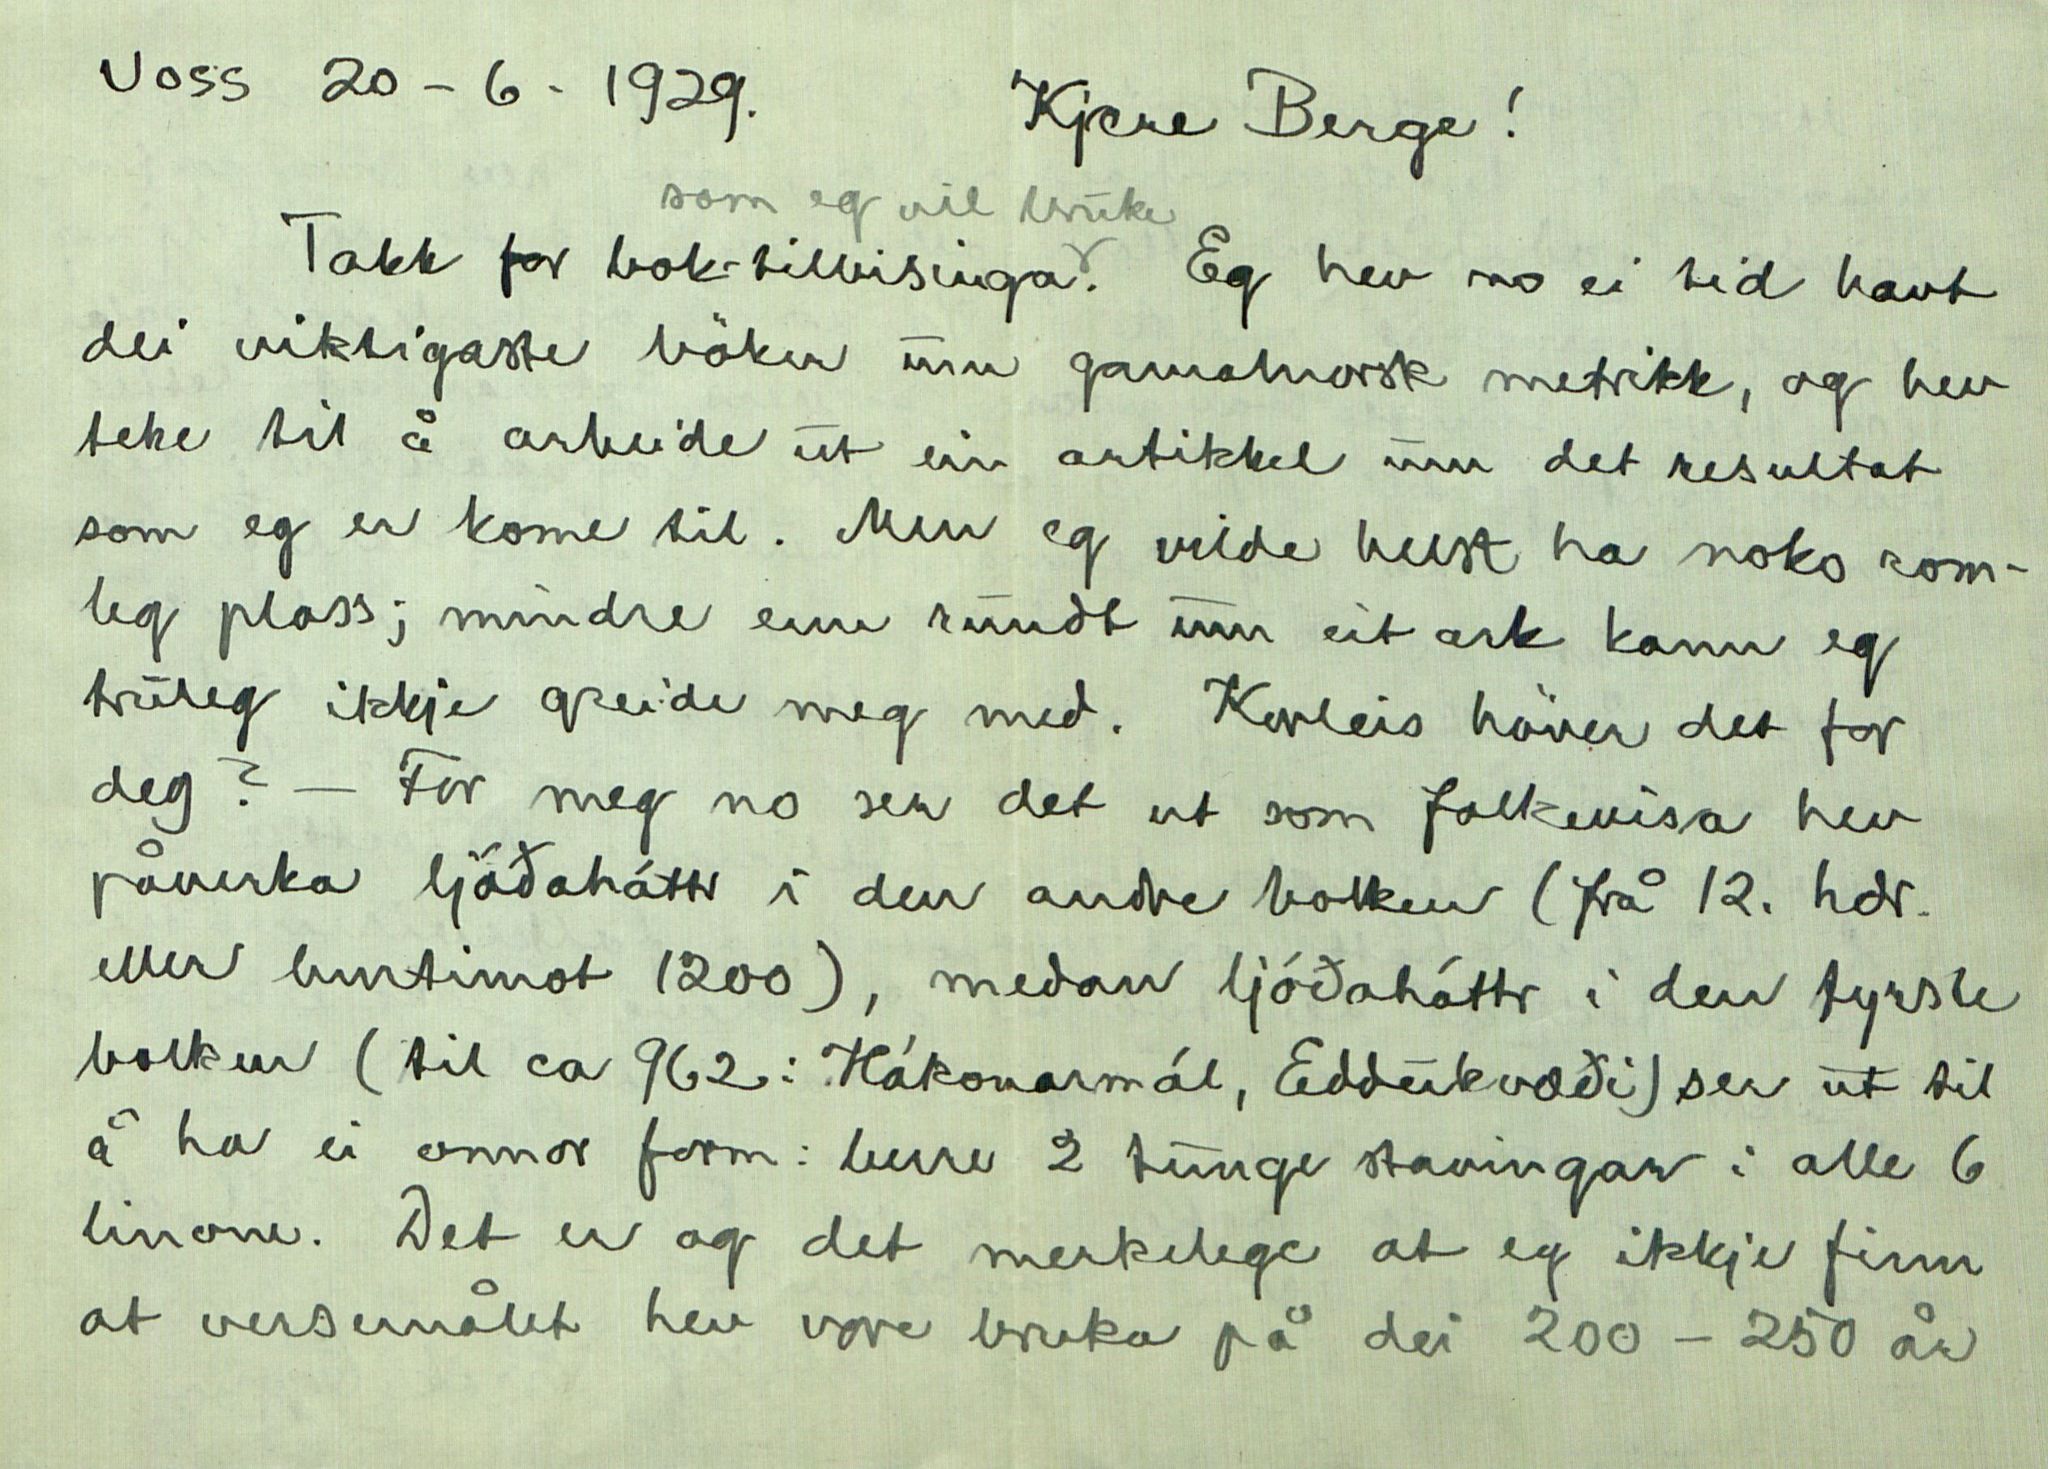 Voss 20-6-1929. Kjære Berge!
som eg vil bruke
Takk for bok-tilvisinga. Eg hev no ei tid havt
dei viktigaste böker um gamalnorsk metrikk, og hev
teke til å arbeide ut ein artikkel um det resultat
som eg er kome til. Men eg vilde helst ha noko rom-
leg plass; mindre enn rundt um eit ark kann eg
truleg ikkje greide meg med. Korleis höver det for
deg? – For meg no ser det ut som folkevisa hev
påverka ljóðaháttr i den andre bolken (frå 12. hdr.
eller burtimot 1200), medan ljóðaháttr i den fyrste
bolken (til ca 962: Hákonarmál, Eddukvæði) ser ut til
å ha ei onnor form: berre 2 tunge stavingar i alle 6
linone. Det er og det merkelege at eg ikkje finn
at versemålet hev vore bruka på dei 200–250 år